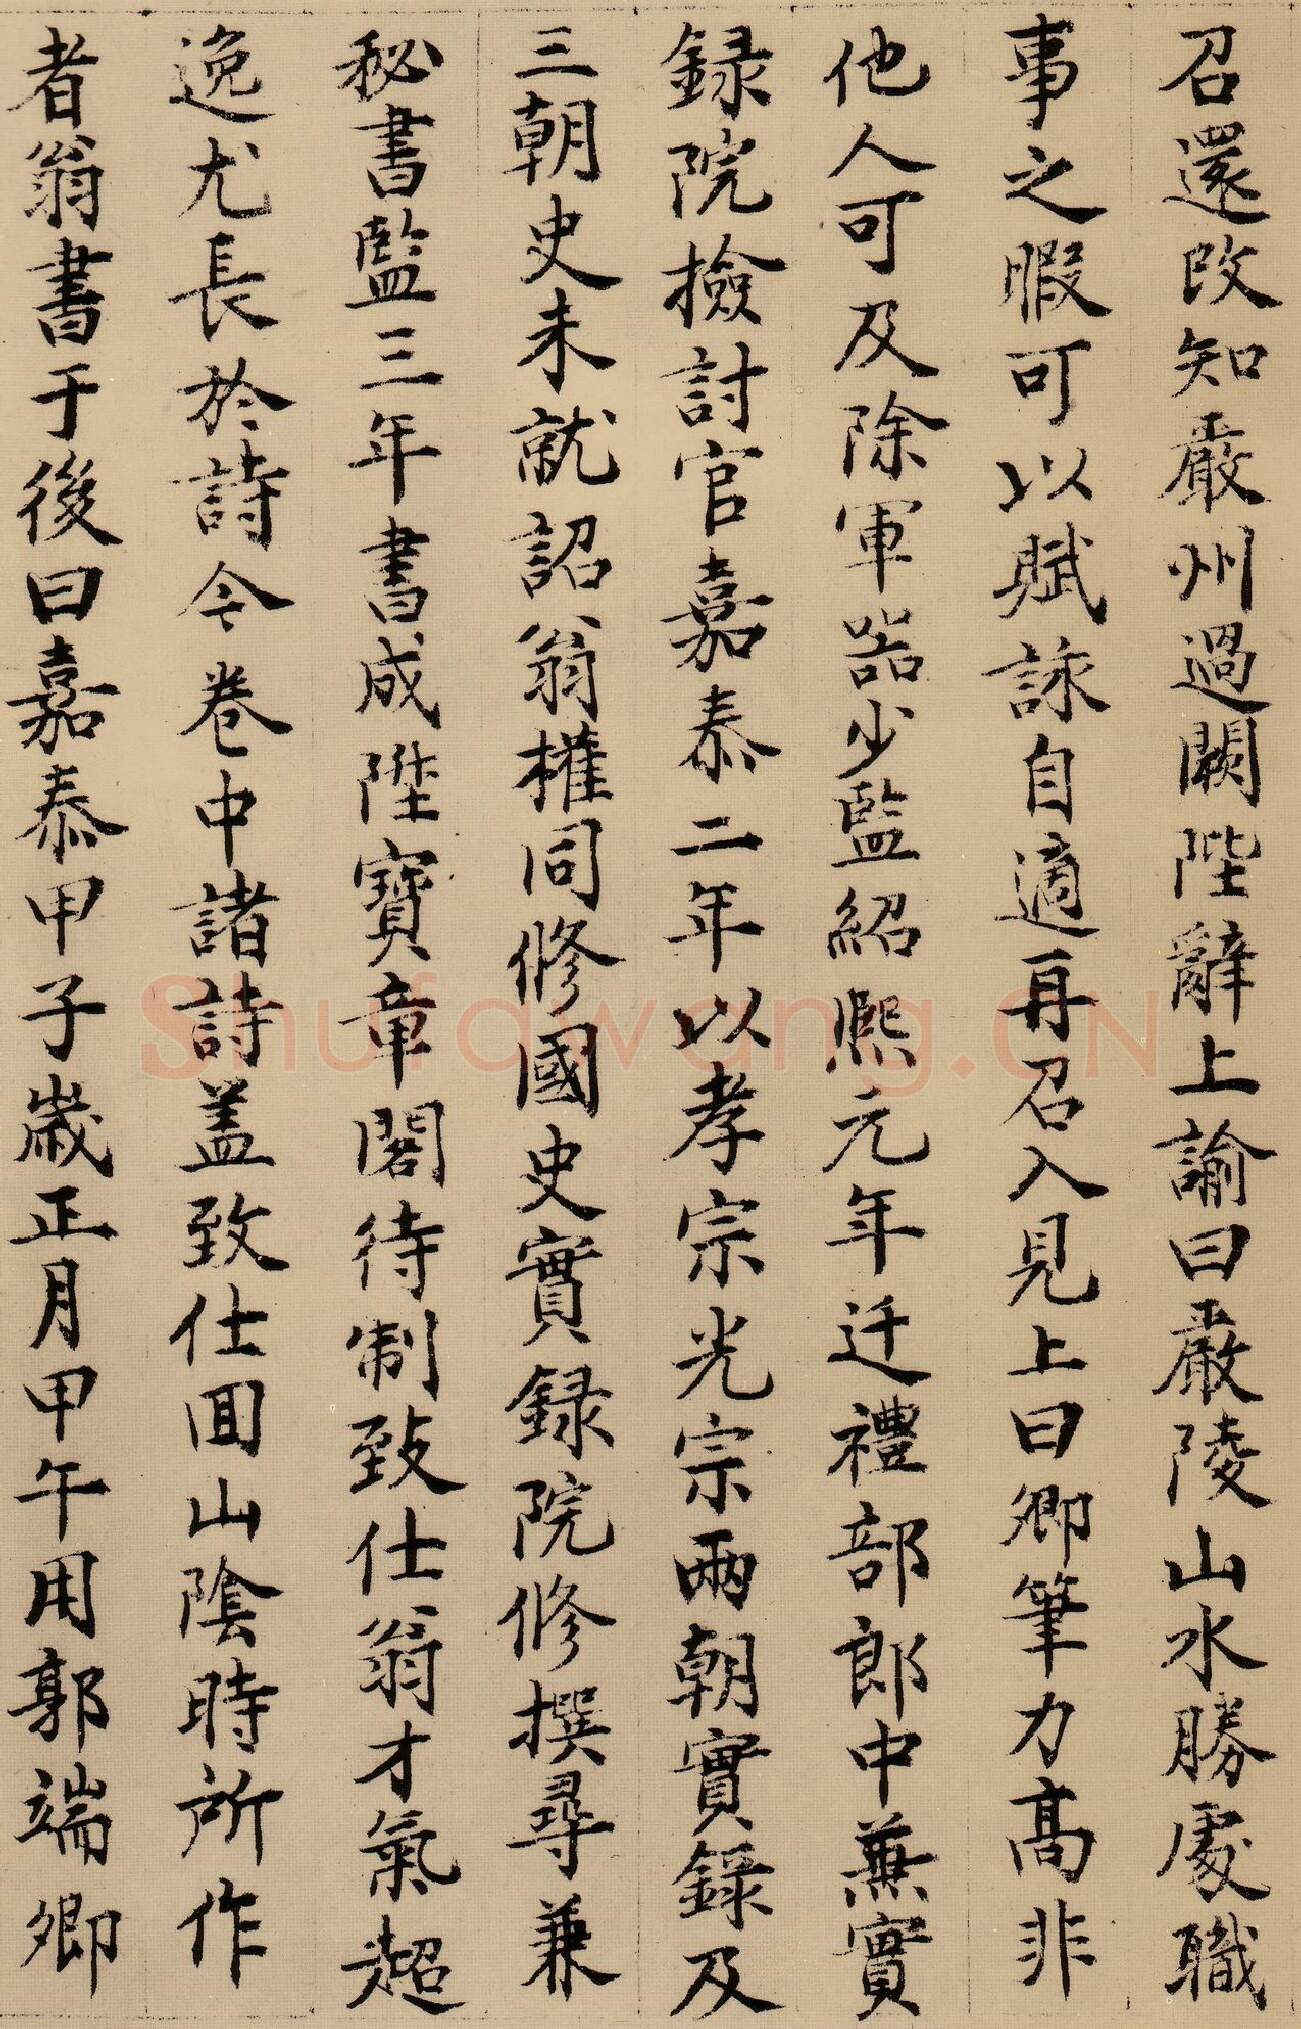 召還改知嚴州過闕陛辭上諭曰嚴陵山水勝處職
事之暇可以賦詠自適再召入見上曰卿筆力高非
他人可及除軍器少監紹熙元年迁禮部郎中兼實
録院撿討官嘉泰二年以孝宗光宗兩朝實錄及
三朝史未就詔翁權同修國史實録院修撰尋兼
秘書監三年書成陞寶章閣待制致仕翁才氣超
逸尤長於詩今卷中諸詩盖致仕囬山陰時所作
者翁書于後曰嘉泰甲子歲正月甲午用郭端卿
Shufawang.CN